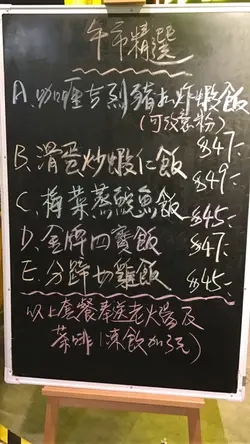 午市精選
A. 咖喱吉列豬扒炸蝦飯
(可改意粉) $47.-
B. 滑蛋炒蝦仁飯 $49.-
C. 梅菜蒸鯇魚飯 $45.-
D. 金牌四寶飯 $47.-
E. 分蹄切雞飯 $45.-
以上套餐奉送老火湯及
茶啡(凍飲加3元)